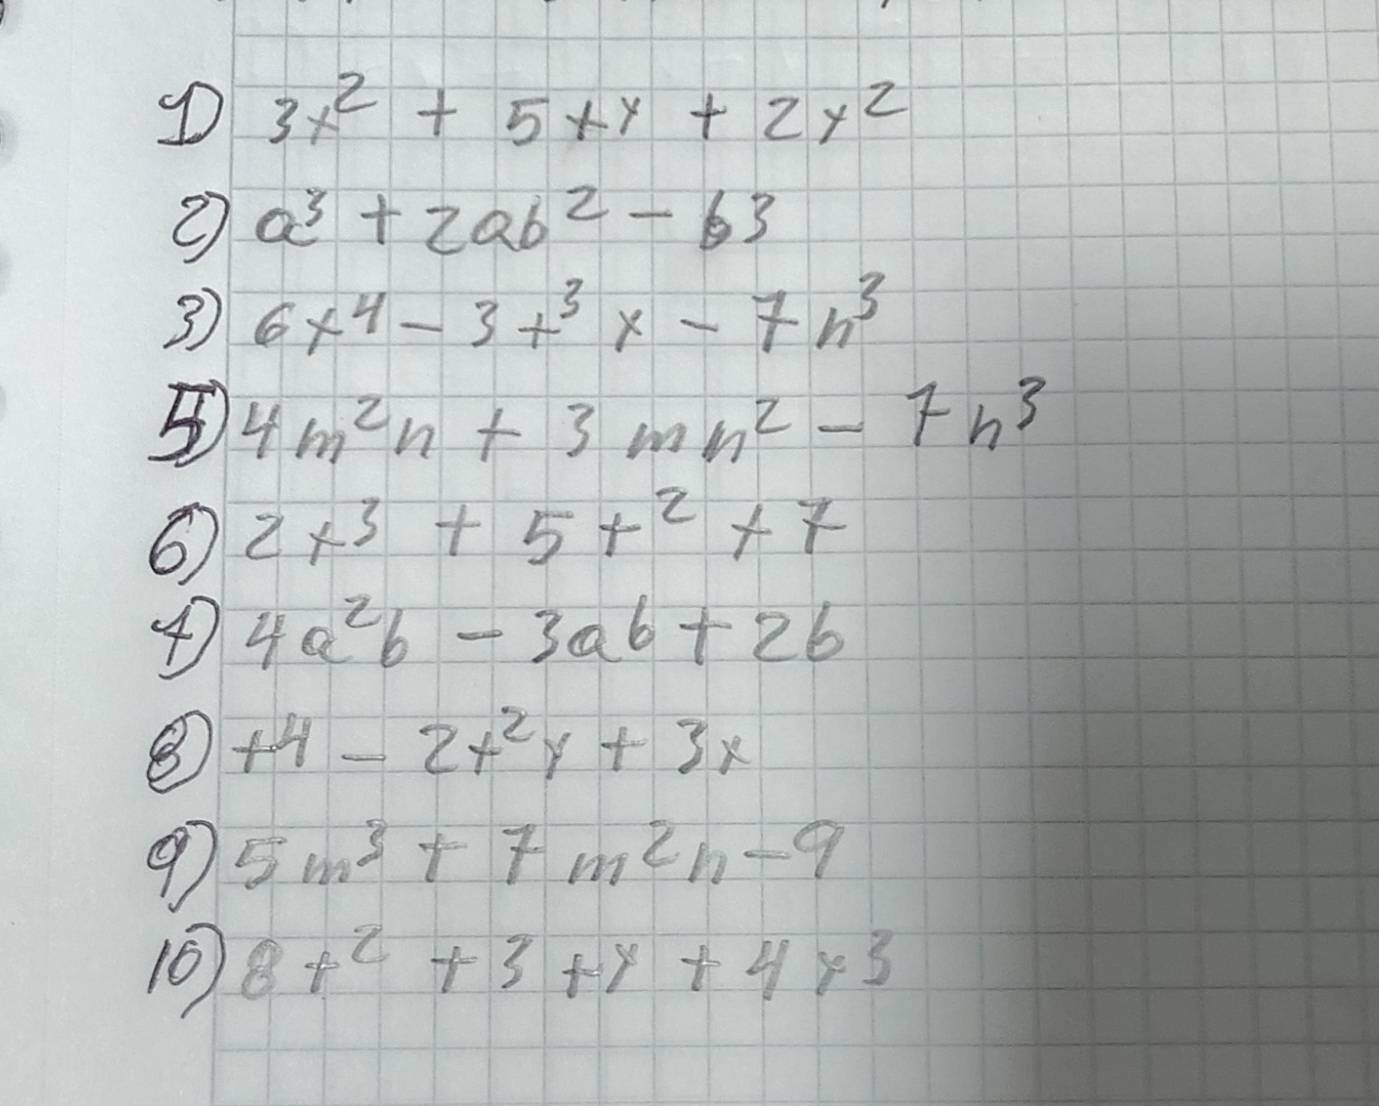 1) 3x² + 5xy + 2y²
2) a³ + 2ab² - b3
3) 6x⁴ - 3x³y - 7n³
5) 4m²n + 3mn² - 7n³
6) 2x³ + 5x² + 7
7) 4a²b - 3ab + 2b
8) x⁴ - 2x²y + 3x
9) 5m³ + 7m²n - 9
10) 8x² + 3xy + 4y3